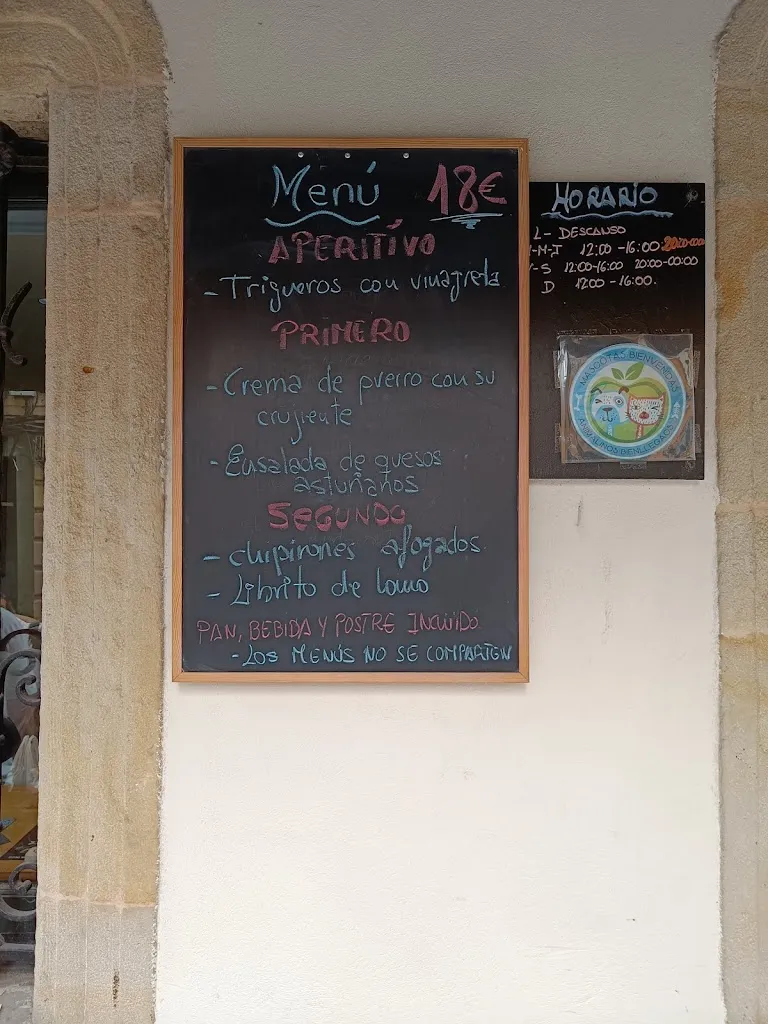 Menú 18€
APERITIVO
- Trigueros con vinagreta
PRIMERO
- Crema de puerro con su
crujiente
- Ensalada de quesos
asturianos
SEGUNDO
- chipirones afogados.
- Librito de lomo
PAN, BEBIDA Y POSTRE INCLUIDO
- LOS MENÚS NO SE COMPARTEN
HORARIO
L - DESCANSO
-M-J 12:00 - 16:00
-S 12:00-16:00 20:00-00:00
D 12:00 - 16:00.
MASCOTAS BIENVENIDAS
ANIMALINOS BIENLLEGAOS